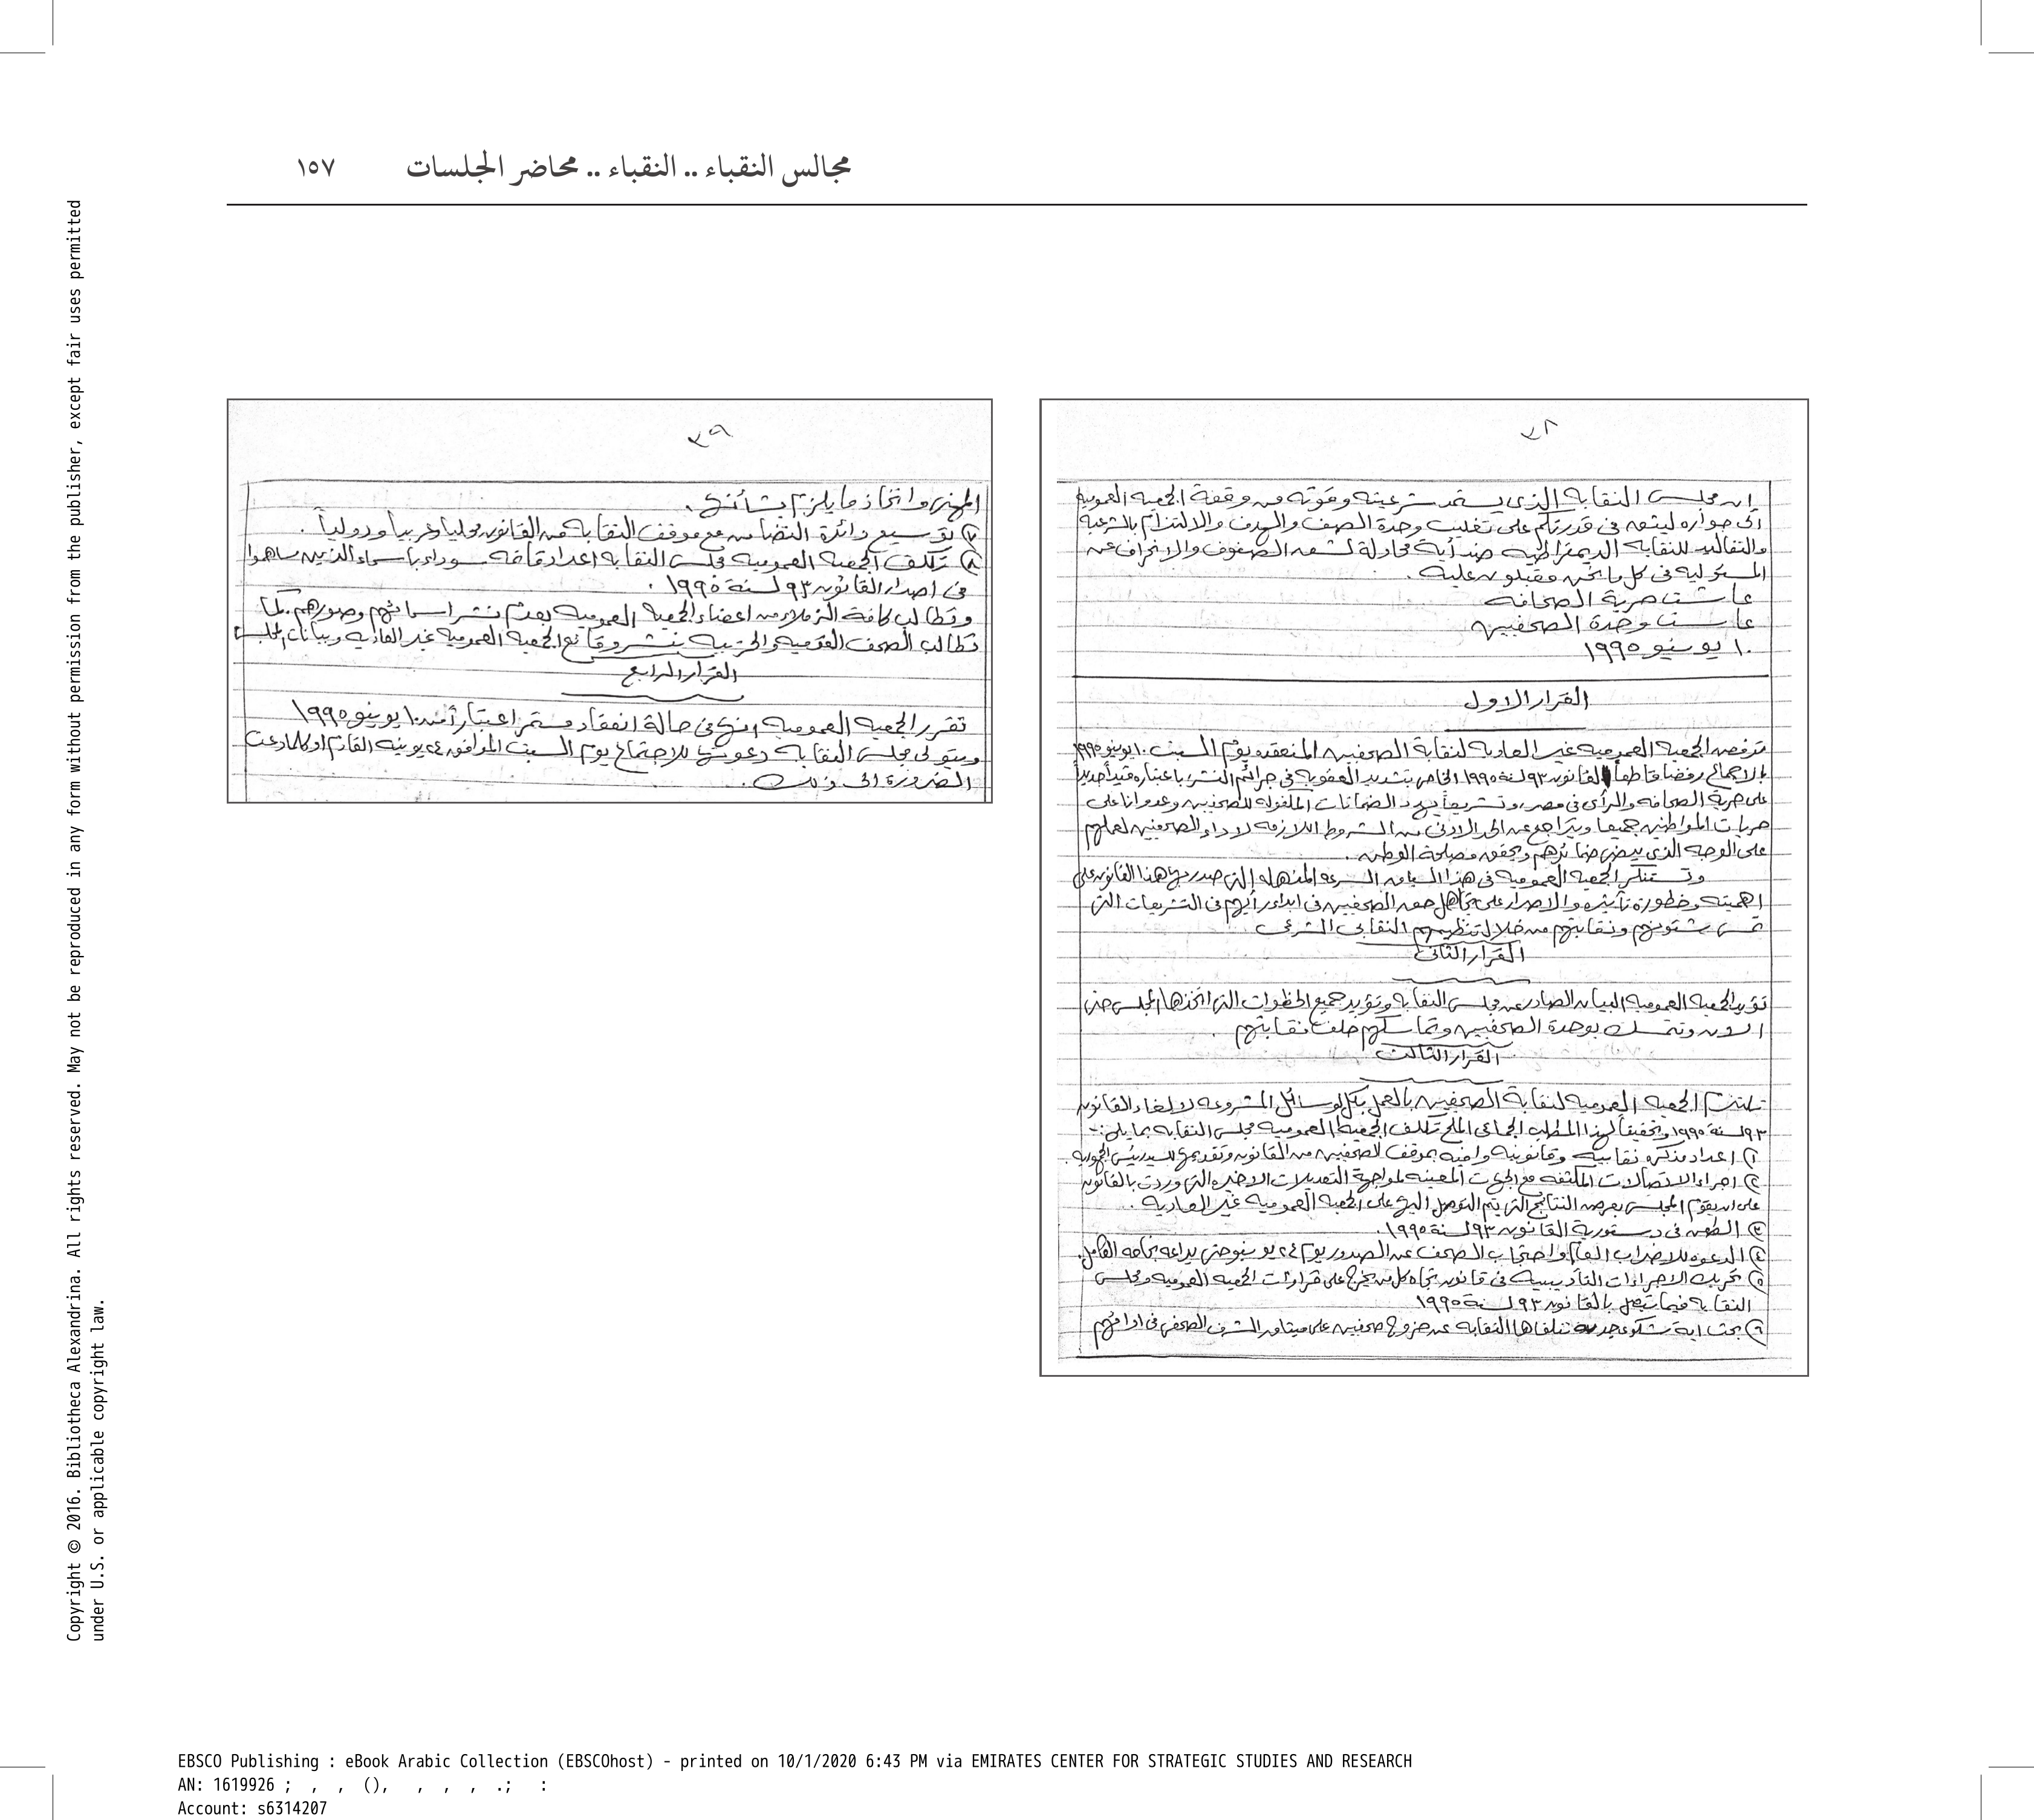 مجالس النقباء .. النقباء .. محاضر الجلسات ١٥٧
٣٨
إن مجلس النقابة الذى يستمد شرعيته وقوته من وقفة الجمعيه العمومية
الى جواره ليثق فى قدرتكم على تغليب وحدة الصف والهدف والالتزام بالشرعية
والتقاليد للنقابه الديمقراطيه ضد أية محاولة لشق الصفوف والانحراف عن
المسئوليه فى كل ما نحن مقبلون عليه .
عاشت حرية الصحافه
عاشت وحدة الصحفيين
١٠ يونيو ١٩٩٥
القرار الاول
ترفض الجمعيه العموميه غير العاديه لنقابة الصحفيين المنعقده يوم السبت ١٠ يونيو ١٩٩٥
بالاجماع رفضا قاطعاً القانون ٩٣ لسنة ١٩٩٥ الخاص بتشديد العقوبه فى جرائم النشر باعتباره قيداً جديداً
على حرية الصحافه والرأى فى مصر، وتشريعاً يهدد الضمانات المكفوله للصحفيين وعدوانا على
حريات المواطنين جميعا ويتراجع عن الحد الادنى من الشروط اللازمه لاداء الصحفيين لعملهم
على الوجه الذى يرضى ضمائرهم ويحقق مصلحة الوطن .
وتستنكر الجمعيه العموميه فى هذا السياق السرعه المذهله التى صدر بها هذا القانون على
اهميته وخطورة تأثيره والاصرار على تجاهل حق الصحفيين فى ابداء رأيهم فى التشريعات التى
تمس شئونهم ونقابتهم من خلال تنظيمهم النقابى الشرعى
القرار الثانى
تؤيد الجمعيه العموميه البيان الصادر عن مجلس النقابه وتؤيد جميع الخطوات التى اتخذها المجلس حتى
الان وتتمسك بوحدة الصحفيين وتماسكهم خلف نقابتهم .
القرار الثالث
تلتزم الجمعيه العموميه لنقابة الصحفيين بالعمل بكل الوسائل المشروعه لالغاء القانون
٩٣ لسنة ١٩٩٥ وتحقيقاً لهذا المطلب الجماعى الملح تكلف الجمعية العموميه مجلس النقابه بما يلى :-
١) اعداد مذكره نقابيه وقانونيه وافيه بموقف الصحفيين من القانون وتقديمها للسيد رئيس الجمهوريه .
٢) اجراء الاتصالات المكثفه مع الجهات المعينه لمواجهة التعديلات الاخيره التى وردت بالقانون
على ان يقوم المجلس بعرض النتائج التى يتم التوصل اليها على الجمعيه العموميه غير العاديه .
٣) الطعن فى دستورية القانون ٩٣ لسنة ١٩٩٥ .
٤) الدعوه للاضراب العام واحتجاب الصحف عن الصدور يوم ٢٤ يونيو حتى نجاحه الكامل .
٥) تحريك الاجراءات التأديبيه فى قانون تجاه كل من يخرج على قرارات الجمعيه العموميه ومجلس
النقابه فيما يتصل بالقانون ٩٣ لسنة ١٩٩٥
٦) بحث اية شكوى جديه تتلقاها النقابه عن خروج صحفيين على ميثاق الشرف الصحفى فى ادائهم
٣٩
المهنى واتخاذ ما يلزم بشأنها .
٧) توسيع دائرة التضامن مع موقف النقابه من القانون محليا وعربياً ودولياً .
٨) تكلف الجمعيه العموميه مجلس النقابه اعداد قائمه سوداء باسماء الذين ساهموا
فى اصدار القانون ٩٣ لسنة ١٩٩٥ .
وتطالب كافة الزملاء من اعضاء الجمعيه العموميه بعدم نشر اسمائهم وصورهم . كما
تطالب الصحف القوميه والحزبيه بنشر وقائع الجمعيه العموميه غير العاديه وبيانات المجلس
القرار الرابع
تقرر الجمعيه العموميه انها فى حالة انعقاد مستمر اعتباراً من ١٠ يونيو ١٩٩٥
ويتولى مجلس النقابه دعوتها للاجتماع يوم السبت الموافق ٢٤ يونيه القادم او كلما دعت
الضرورة الى ذلك .
Copyright © 2016. Bibliotheca Alexandrina. All rights reserved. May not be reproduced in any form without permission from the publisher, except fair uses permitted
under U.S. or applicable copyright law.
EBSCO Publishing : eBook Arabic Collection (EBSCOhost) - printed on 10/1/2020 6:43 PM via EMIRATES CENTER FOR STRATEGIC STUDIES AND RESEARCH
AN: 1619926 ; , , (), , , , .; :
Account: s6314207